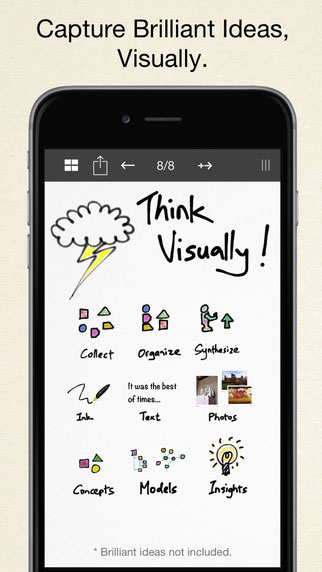 Capture Brilliant Ideas,
Visually.
8/8
Think
Visually!
Collect
Organize
Synthesize
It was the best
of times...
Ink
Text
Photos
Concepts
Models
Insights
* Brilliant ideas not included.